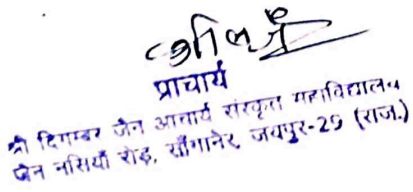 प्राचार्य
श्री दिगम्बर जैन आचार्य संस्कृत महाविद्यालय
जैन नसियाँ रोड़, साँगानेर, जयपुर-29 (राज.)